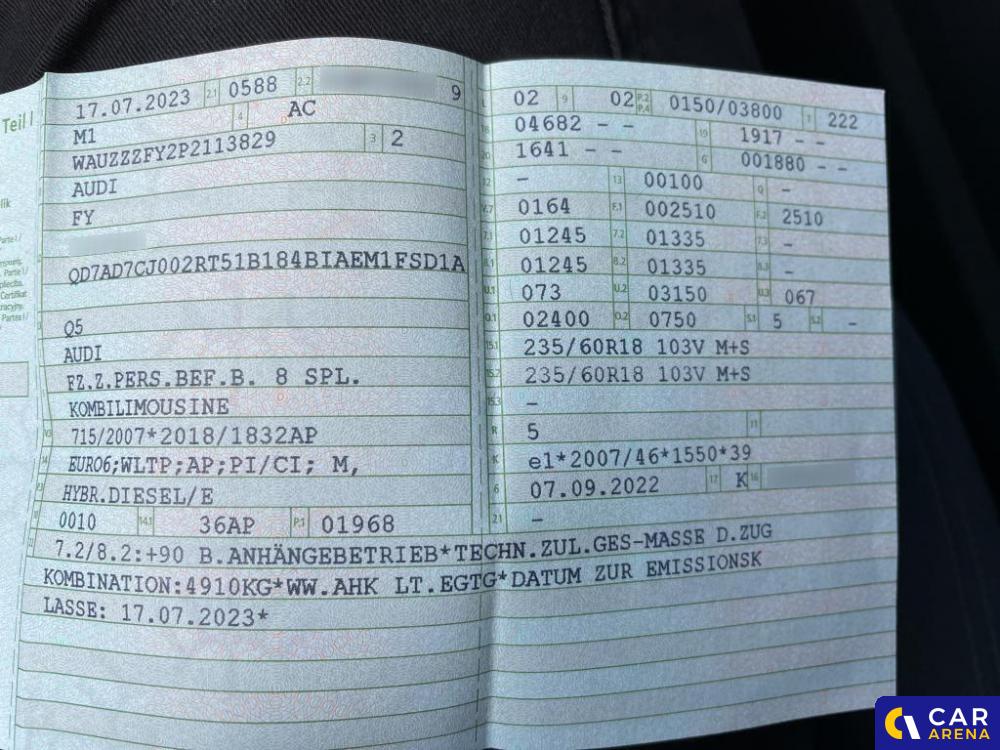 Teil I
17.07.2023 2.1 0588 2.2 9
M1 4 AC
WAUZZZFY2P2113829 3 2
AUDI
FY
QD7AD7CJ002RT51B184BIAEM1FSD1A
Q5
AUDI
FZ.Z.PERS.BEF.B. 8 SPL.
KOMBILIMOUSINE
715/2007*2018/1832AP
EURO6;WLTP;AP;PI/CI; M,
HYBR.DIESEL/E
0010 14.1 36AP P.1 01968
L 02 9 02 P.2 P.4 0150/03800 T 222
18 04682 - - 19 1917 - -
20 1641 - - G 001880 - -
12 - 13 00100 Q -
V.7 0164 F.1 002510 F.2 2510
7.1 01245 7.2 01335 7.3 -
8.1 01245 8.2 01335 8.3 -
U.1 073 U.2 03150 U.3 067
O.1 02400 O.2 0750 S.1 5 S.2 -
15.1 235/60R18 103V M+S
15.2 235/60R18 103V M+S
15.3 -
R 5 11
K e1*2007/46*1550*39
6 07.09.2022 17 K 16
21 -
7.2/8.2:+90 B.ANHÄNGEBETRIEB*TECHN.ZUL.GES-MASSE D.ZUG
KOMBINATION:4910KG*WW.AHK LT.EGTG*DATUM ZUR EMISSIONSK
LASSE: 17.07.2023*
CAR
ARENA